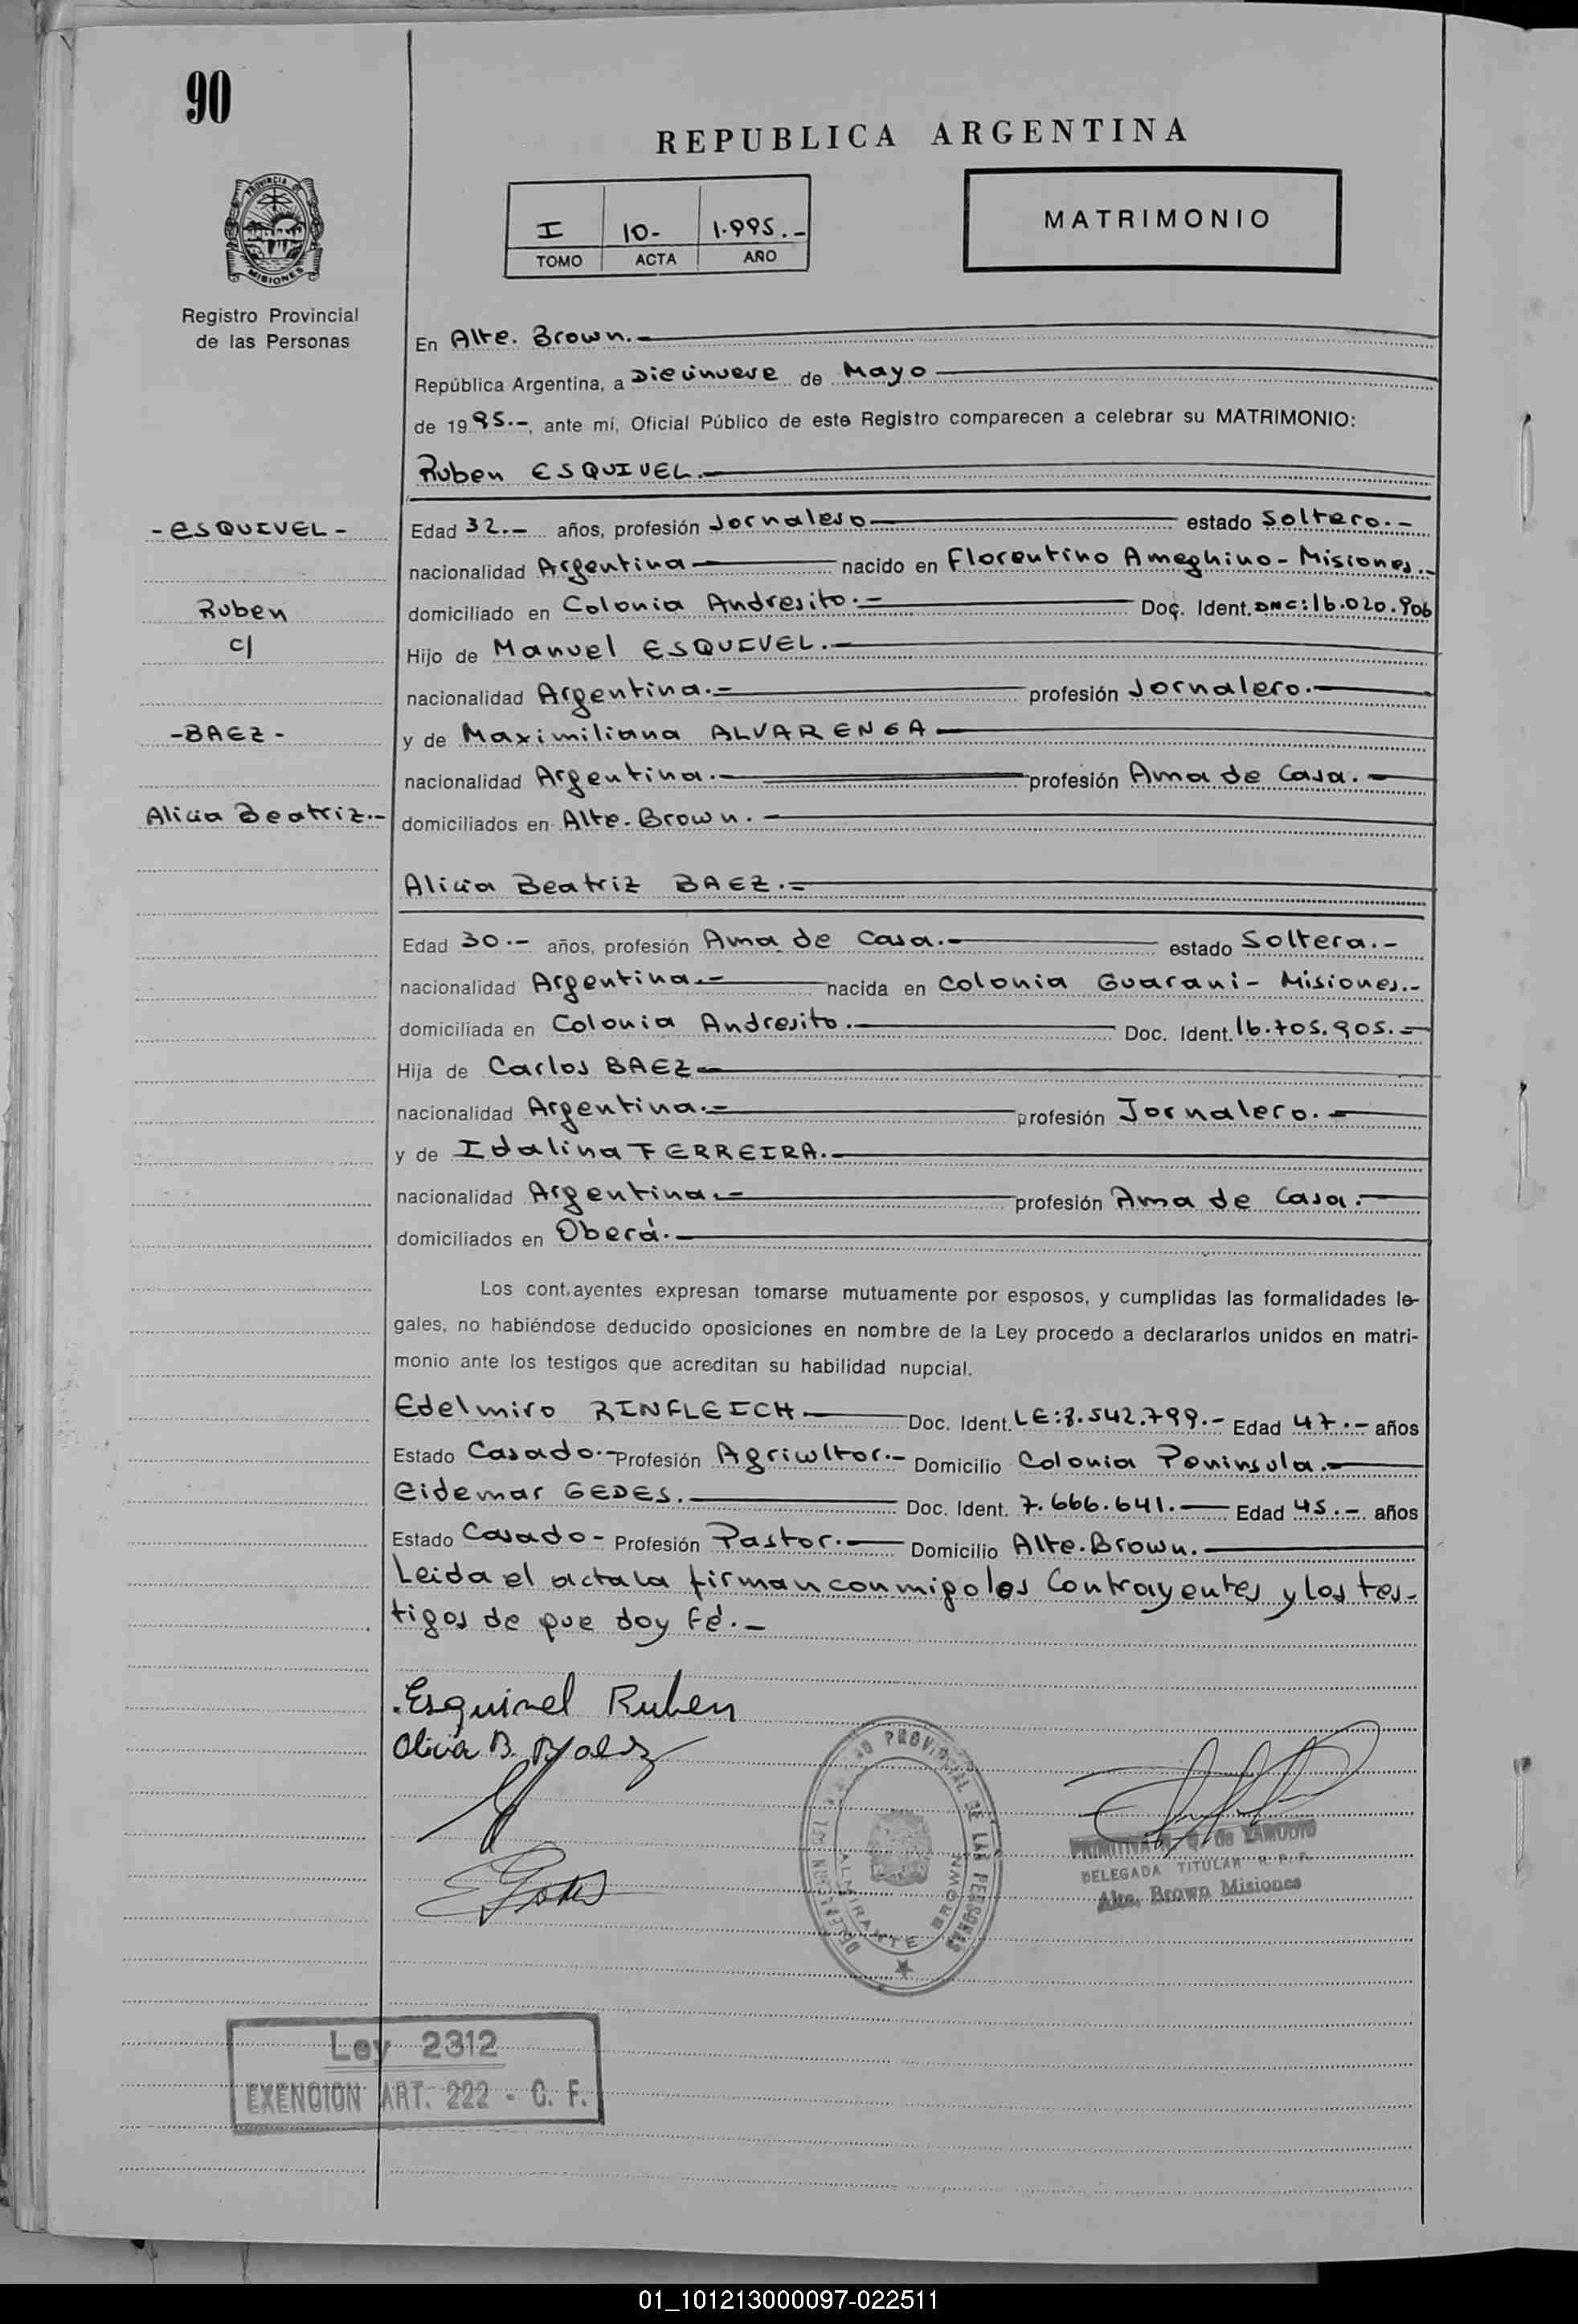 90
REPUBLICA ARGENTINA
I 10- 1.995.-
TOMO ACTA AÑO
MATRIMONIO
PROVINCIA DE
MISIONES
Registro Provincial
de las Personas
En Alte. Brown.-
República Argentina, a Diecinueve de Mayo
de 1995.-, ante mí, Oficial Público de este Registro comparecen a celebrar su MATRIMONIO:
Ruben ESQUIVEL.-
-ESQUIVEL-
Ruben
c/
-BAEZ-
Alicia Beatriz.-
Edad 32.- años, profesión Jornalero estado Soltero.-
nacionalidad Argentina nacido en Florentino Ameghino-Misiones.-
domiciliado en Colonia Andresito.- Doc. Ident. DNC:16.020.906
Hijo de Manuel ESQUIVEL.-
nacionalidad Argentina.- profesión Jornalero.-
y de Maximiliana ALVARENGA
nacionalidad Argentina.- profesión Ama de Casa.-
domiciliados en Alte.Brown.-
Alicia Beatriz BAEZ.-
Edad 30.- años, profesión Ama de Casa.- estado Soltera.-
nacionalidad Argentina.- nacida en Colonia Guarani- Misiones.-
domiciliada en Colonia Andresito.- Doc. Ident. 16.705.905.-
Hija de Carlos BAEZ
nacionalidad Argentina.- profesión Jornalero.-
y de Idalina FERREIRA.-
nacionalidad Argentina.- profesión Ama de Casa.-
domiciliados en Oberá.-
Los cont.ayentes expresan tomarse mutuamente por esposos, y cumplidas las formalidades le-
gales, no habiéndose deducido oposiciones en nombre de la Ley procedo a declararlos unidos en matri-
monio ante los testigos que acreditan su habilidad nupcial.
Edelmiro RINFLEICH Doc. Ident. LE:8.542.799.- Edad 47.- años
Estado Casado.- Profesión Agricultor.- Domicilio Colonia Peninsula.-
Eidemar GEDES.- Doc. Ident. 7.666.641.- Edad 45.- años
Estado Casado- Profesión Pastor.- Domicilio Alte.Brown.-
Leida el acta la firman conmigo los Contrayentes y los tes-
tigos de que doy fé.-
Esquivel Ruben
Alicia B. Baez
PROVINCIAL DE LAS PERSONAS
ALMIRANTE BROWN
DELEGADA TITULAR R. P. P.
Alte. Brown Misiones
Ley 2312
EXENCION ART. 222 - C. F.
01_101213000097-022511